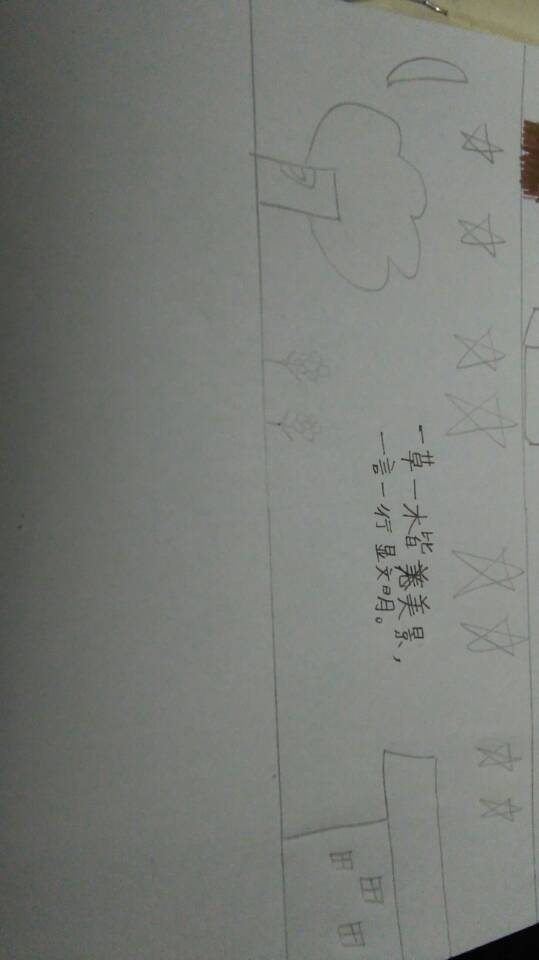 一草一木皆美景，
一言一行显文明。